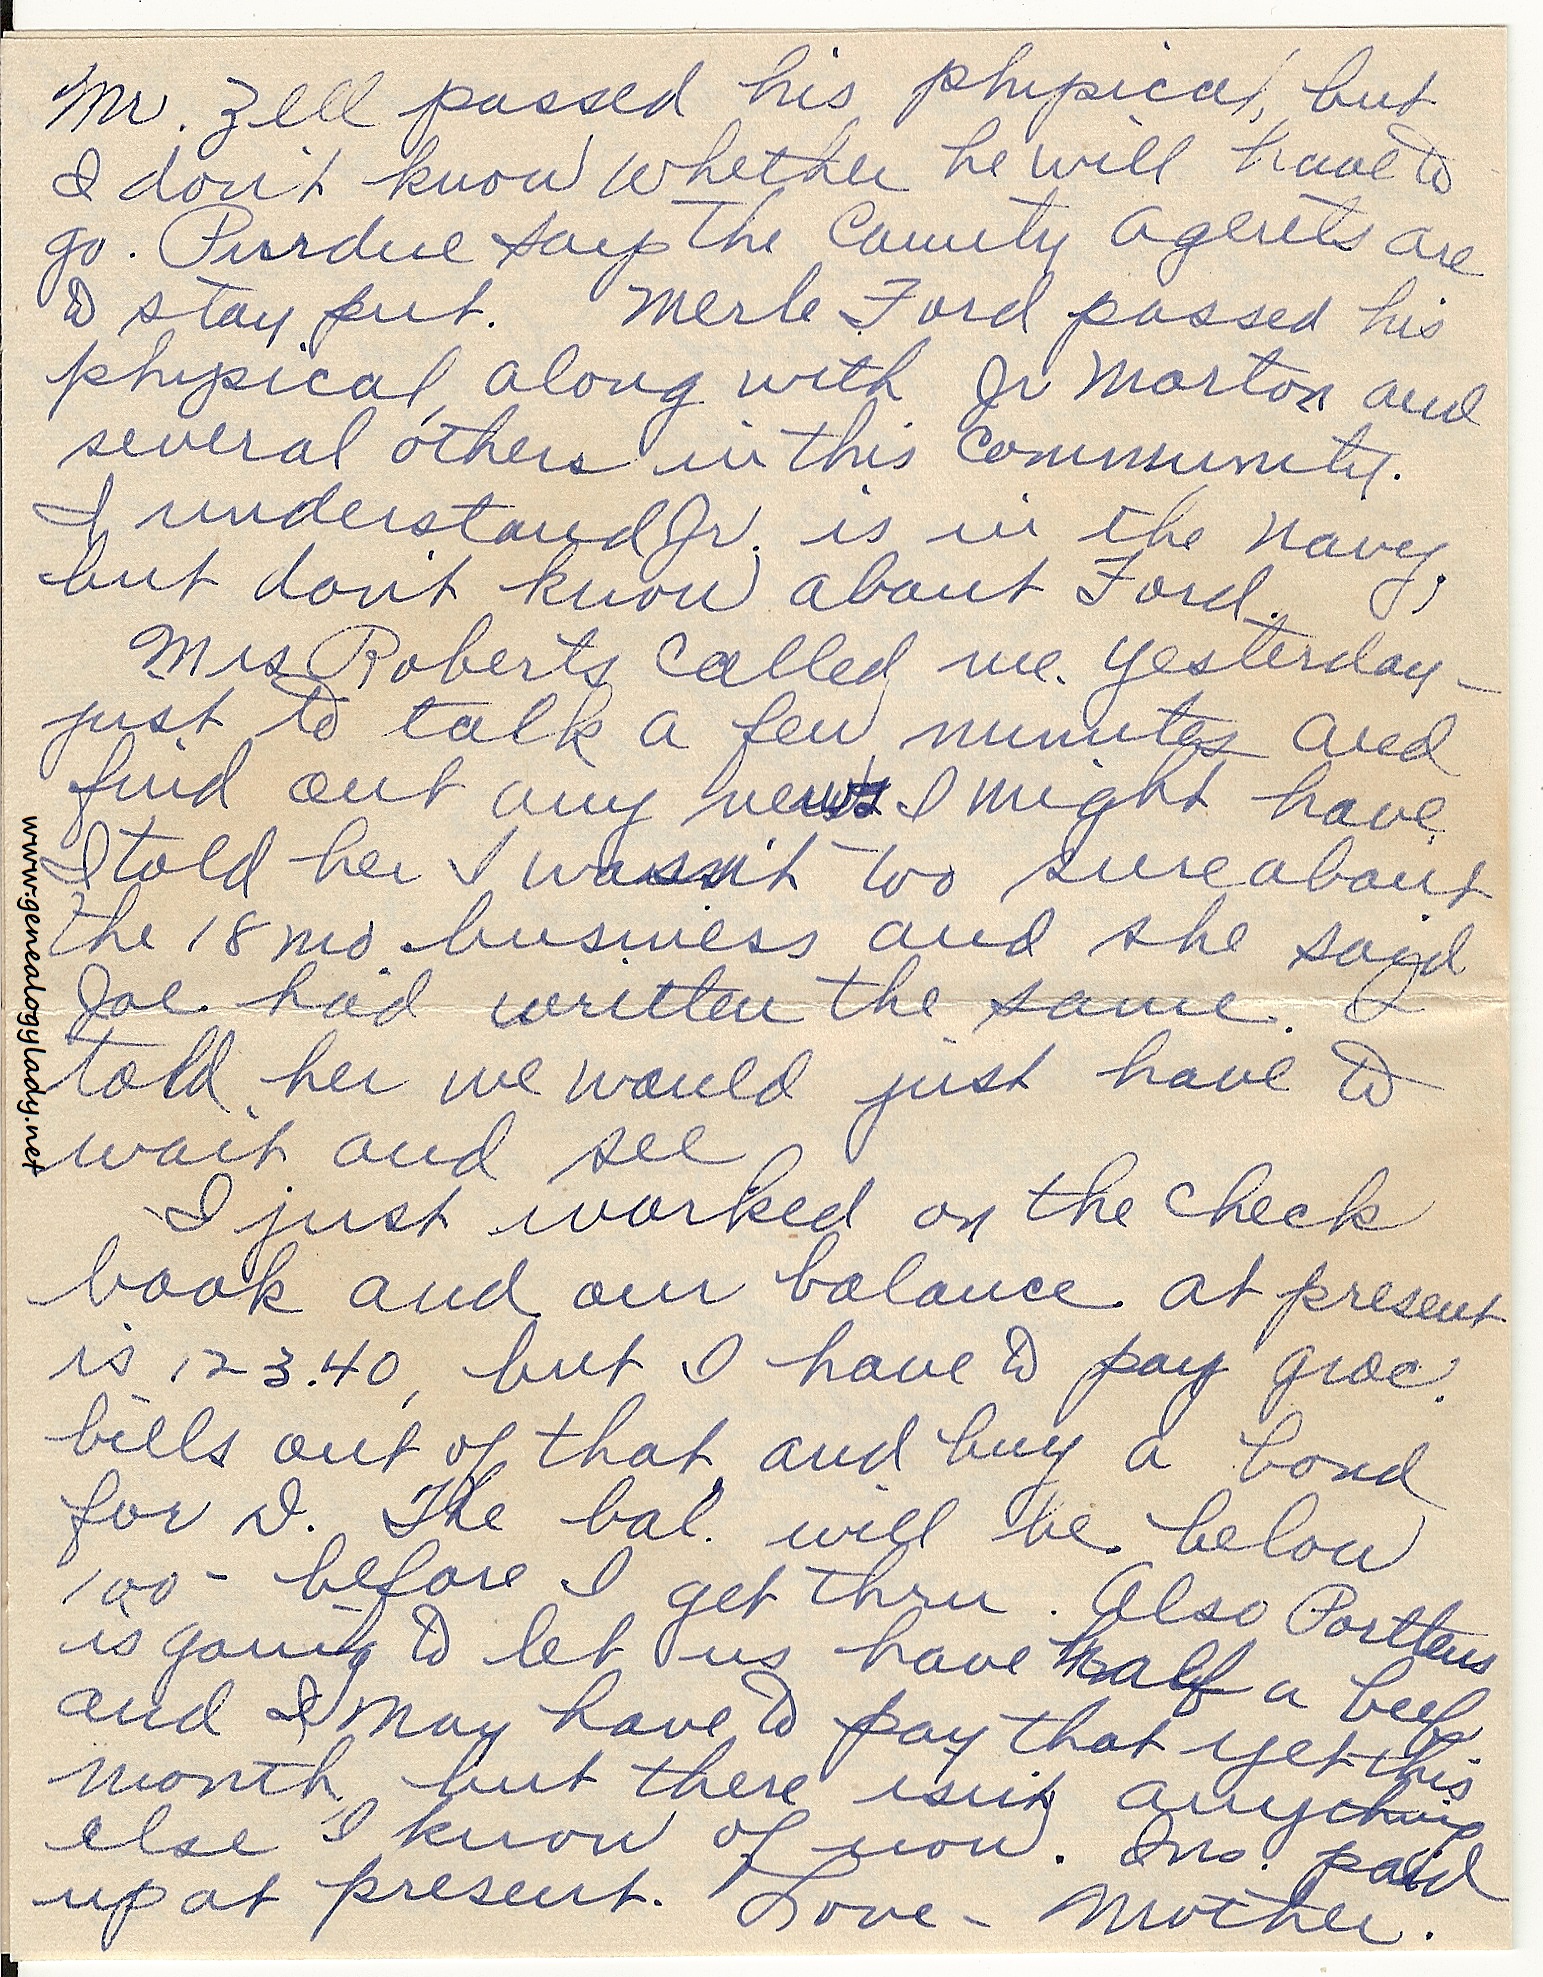 Mr. Zell passed his physical, but
I don't know whether he will have to
go. Purdue says the County Agents are
to stay put. Merle Ford passed his
physical, along with Jr Morton and
several others in this community.
I understand Jr. is in the Navy,
but don't know about Ford.
Mrs Roberts called me yesterday -
just to talk a few minutes and
find out any news I might have.
I told her I wasn't too sure about
the 18 mo. business and she said
Joe had written the same. I
told her we would just have to
wait and see
I just worked on the check
book and our balance at present
is 123.40, but I have to pay groc.
bills out of that, and buy a bond
for D. The bal. will be below
100- before I get thru. Also Portteus
is going to let us have half a beef
and I may have to pay that yet this
month, but there isn't anything
else I know of now. Ins. paid
up at present. Love - Mother.
www.genealogylady.net